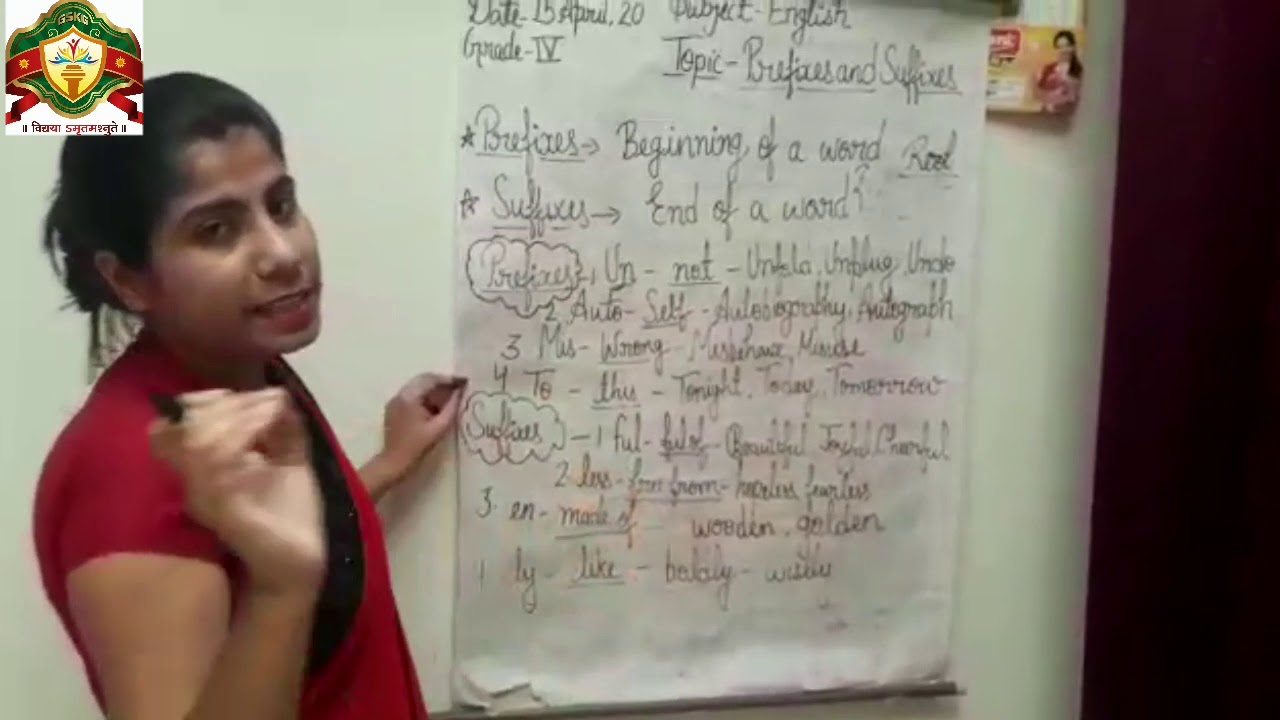 GSKG
॥ विद्यया ऽमृतमश्नुते ॥
Date-15 April, 20 Subject-English
Grade-IV Topic-Prefixes and Suffixes
★ Prefixes→ Beginning of a word Root
★ Suffixes→ End of a word
Prefixes-1 Un - not - Unfold, Unplug, Undo
2 Auto-Self-Autobiography, Autograph
3 Mis- Wrong-Misbehave, Misuse
4 To - this - Tonight, Today, Tomorrow
Suffixes - 1 ful- ful of-Beautiful, Joyful, Cheerful
2 less- free from- fearless
3. en- made of wooden, golden
ly- like - boldly- wisely